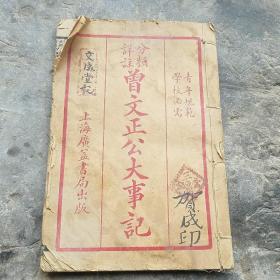 青年規範
學校適需
分類
詳註
曾文正公大事記
上海廣益書局出版
文成堂記
賀成印